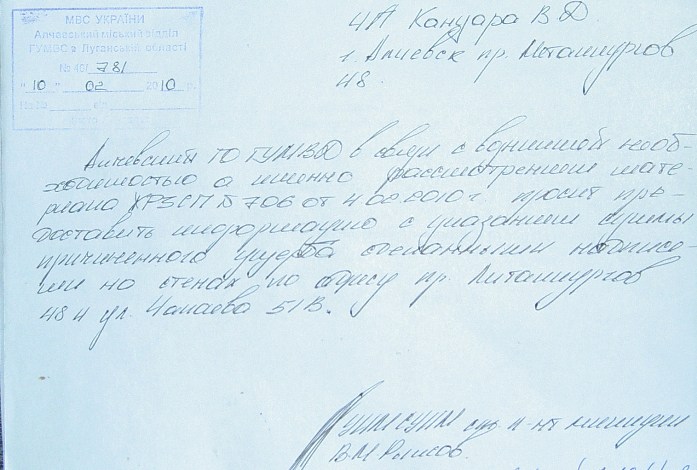 МВС УКРАЇНИ
Алчевський міський відділ
ГУМВС в Луганській області
№ 40/ 781
"10" 02 2010 г.
ЧП Кануара В Д
г. Алчевск пр. Металлургов
48.
Алчевский ГО ГУМВД в связи с возникшей необ-
ходимостью а именно рассмотрением мате-
риала ЖРЗСП № 706 от 4.02.2010 г. просит пре-
доставить информацию с указанием суммы
причиненного ущерба сделанными надпися-
ми на стенах по адресу пр. Металлургов
48 и ул. Чапаева 51В.
л-нт милиции
В.М.